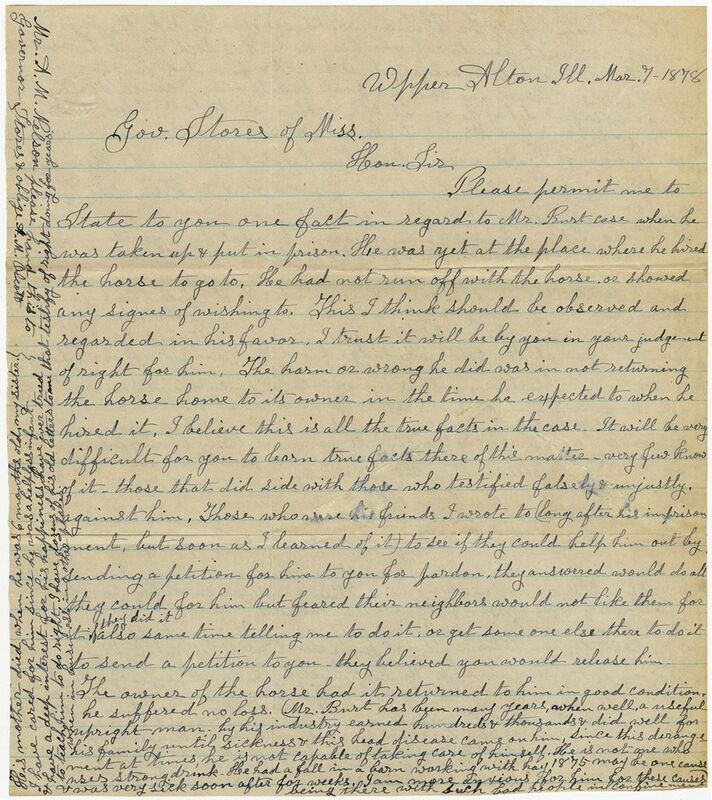 Upper Alton Ill. Mar. 7-1878
Gov. Stores of Miss.
Hon. Sir
Please permit me to
State to you one fact in regard to Mr. Burt case when he
was taken up & put in prison. He was yet at the place where he hired
the horse to go to. He had not run off with the horse, or showed
any signes of wishing to. This I think should be observed and
regarded in his favor, I trust it will be by you in your judgement
of right for him. The harm or wrong he did was in not returning
the horse home to its owner in the time he expected to when he
hired it, I believe this is all the true facts in the case. It will be very
difficult for you to learn true facts there of this matter - very few know
of it - those that did side with those who testified falsely & unjustly,
against him, Those who were his friends I wrote to (long after his imprison
ment, but soon as I learned of it) to see if they could help him out by
sending a petition for him to you for pardon, they answered would do all
they could for him but feared their neighbors would not like them for
it if they did it also same time telling me to do it, or get some one else there to do it
to send a petition to you - they believed you would release him.
The owner of the horse had it returned to him in good condition,
he suffered no loss. (Mr. Burt has been many years, when well, a useful
upright man, by his industry earned hundreds & thousands & did well for
his family until sickness & this head disease came on him, since this derange
ment at times he is not capable of taking care of himself. He is not one who
uses strong drink. He had a fall in a barn working with hay, 1875 may be one cause
& was very sick soon after for weeks. I am more anxious for him for these causes
being there with such bad people in confinement
His mother died when he was months old, my sister
I have cared for him since he was
& have a deep interest in his right & happiness have ever tried
to teach him to do right. I have some of his old letters to me that testify of right doing for years
Mr. A. M. Nelson please hand this to
Governor Stores & oblige A. M. Burt